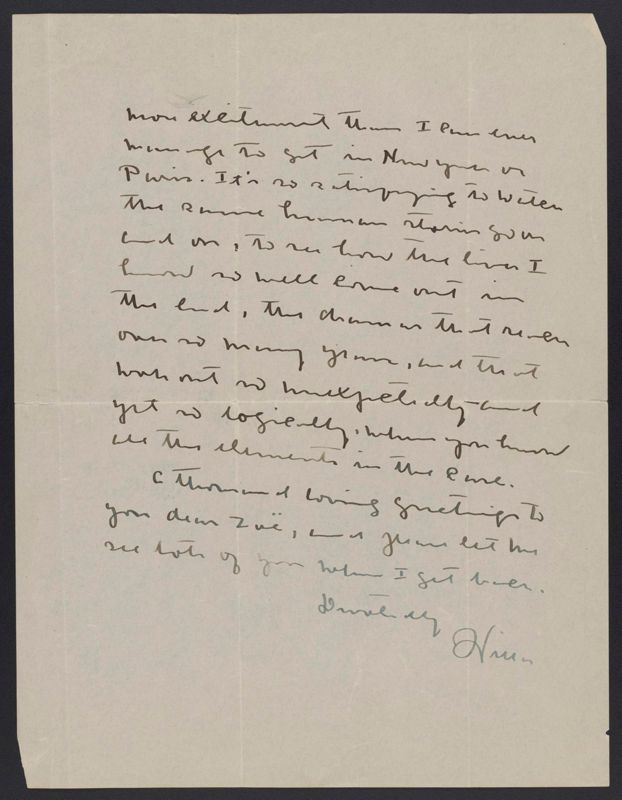 more excitement than I can ever
manage to get in New York or
Paris. It's so satisfying to watch
the same human stories go on
and on, to see how the lives I
know so well come out in
the end, the dramas that reach
over so many years, and that
work out so unexpectedly and
yet so logically, when you know
all the elements in the case.
A thousand loving greetings to
you dear Zoë, and please let me
see lots of you when I get back.
Devotedly